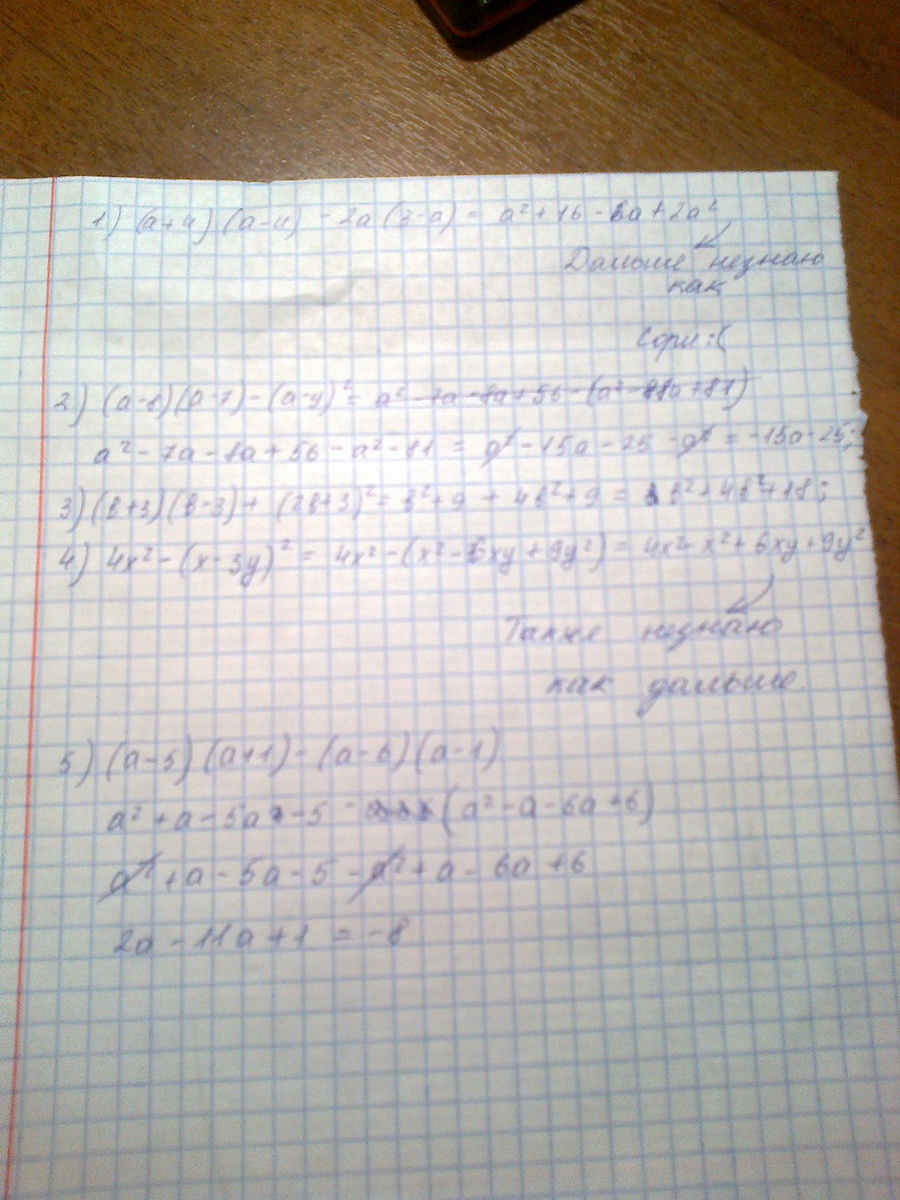 1) (a+4)(a-4) - 2a(3-a) = a² + 16 - 6a + 2a²
Дальше незнаю
как
Сори :(
2) (a-8)(a-7) - (a-9)² = a² - 7a - 8a + 56 - (a² - 18a + 81)
a² - 7a - 8a + 56 - a² - 81 = a² - 15a - 25 - a² = -15a - 25;
3) (в+3)(в-3) + (2в+3)² = в² + 9 + 4в² + 9 = в² + 4в² + 18;
4) 4x² - (x-3y)² = 4x² - (x² - 6xy + 9y²) = 4x² - x² + 6xy + 9y²
Также незнаю
как дальше.
5) (a-5)(a+1) - (a-6)(a-1)
a² + a - 5a - 5 - (a² - a - 6a + 6)
a² + a - 5a - 5 - a² + a - 6a + 6
2a - 11a + 1 = -8